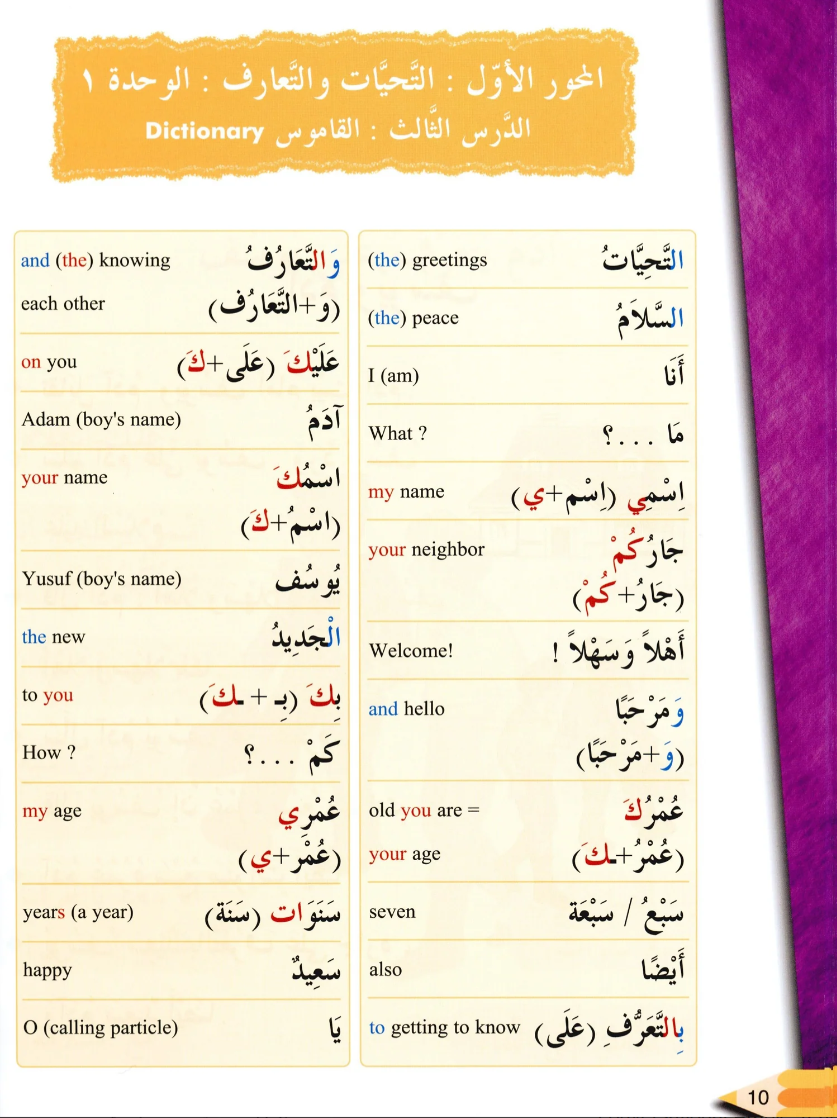 المحور الأوّل : التَّحيَّات والتَّعارف : الوحدة ١
الدَّرس الثَّالث : القاموس Dictionary
(the) greetings التَّحِيَّاتُ
(the) peace السَّلاَمُ
I (am) أَنَا
What ? مَا . . . ؟
my name اِسْمِي (اِسْم+ي)
your neighbor جَارُكُمْ
(جَارُ+كُمْ)
Welcome! أَهْلاً وَ سَهْلاً !
and hello وَ مَرْحَبًا
(وَ+مَرْحَبًا)
old you are = عُمْرُكَ
your age (عُمْرُ+ـكَ)
seven سَبْعُ / سَبْعَة
also أَيْضًا
to getting to know بِالتَّعَرُّفِ (عَلَى)
and (the) knowing وَالتَّعَارُفُ
each other (وَ+التَّعَارُف)
on you عَلَيْكَ (عَلَى+كَ)
Adam (boy's name) آدَمُ
your name اسْمُكَ
(اسْمُ+كَ)
Yusuf (boy's name) يُوسُف
the new الْجَدِيدُ
to you بِكَ (بِـ + ـكَ)
How ? كَمْ . . . ؟
my age عُمْرِي
(عُمْر+ي)
years (a year) سَنَوَات (سَنَة)
happy سَعِيدٌ
O (calling particle) يَا
10